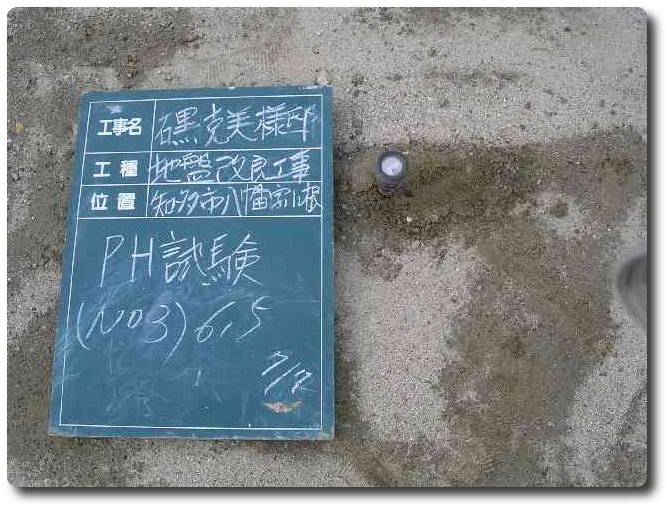 工事名 石黒克美様邸
工種 地盤改良工事
位置 知多市八幡
PH試験
(No3) 6.5
7/2